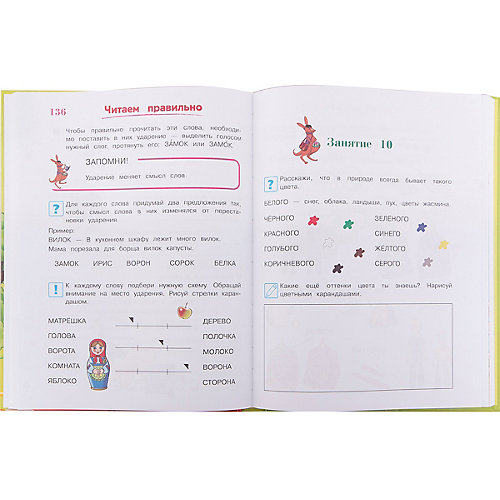 136
Читаем правильно
Чтобы правильно прочитать эти слова, необходи-
мо поставить в них ударение — выделить голосом
нужный слог, протянуть его: ЗА́МОК или ЗАМО́К.
ЗАПОМНИ!
Ударение меняет смысл слов.
? Для каждого слова придумай два предложения так,
чтобы смысл слов в них изменялся от переста-
новки ударения.
Пример:
ВИЛОК — В кухонном шкафу лежит много вилок.
Мама порезала для борща вилок капусты.
ЗАМОК ИРИС ВОРОН СОРОК БЕЛКА
! К каждому слову подбери нужную схему. Обращай
внимание на место ударения. Рисуй стрелки каран-
дашом.
МАТРЁШКА ДЕРЕВО
ГОЛОВА ПОЛОЧКА
ВОРОТА МОЛОКО
КОМНАТА ВОРОНА
ЯБЛОКО СТОРОНА
Занятие 10
? Расскажи, что в природе всегда бывает такого
цвета.
БЕЛОГО — снег, облака, ландыши, пух, цветы жасмина.
ЧЁРНОГО ЗЕЛЁНОГО
КРАСНОГО СИНЕГО
ГОЛУБОГО ЖЁЛТОГО
КОРИЧНЕВОГО СЕРОГО
Какие ещё оттенки цвета ты знаешь? Нарисуй
цветными карандашами.